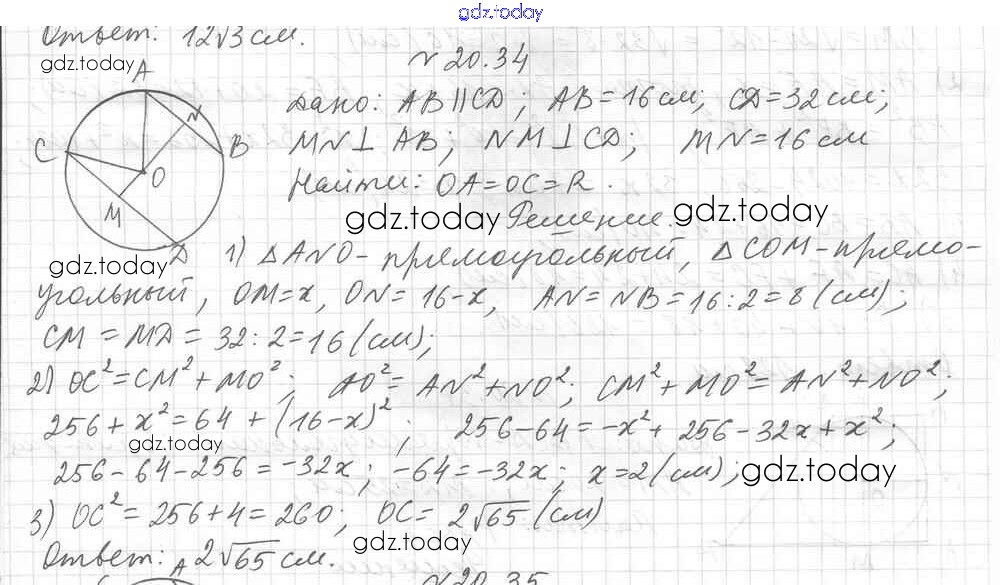 gdz.today
Ответ: 12√3 см.
gdz.today
N 20.34
A
N
C
B
O
M
D
Дано: AB||CD; AB=16 см; CD=32 см;
MN⊥AB; NM⊥CD; MN=16 см
Найти: OA=OC=R.
gdz.today
Решение.
gdz.today
gdz.today
1) △ANO-прямоугольный, △COM-прямо-
угольный, OM=x, ON=16-x, AN=NB=16:2=8(см);
CM=MD=32:2=16(см);
2) OC²=CM²+MO²; AO²=AN²+NO²; CM²+MO²=AN²+NO²;
256+x²=64+(16-x)²; 256-64=-x²+256-32x+x²;
gdz.today
256-64-256=-32x; -64=-32x; x=2(см);
gdz.today
3) OC²=256+4=260; OC=2√65(см)
gdz.today
Ответ: 2√65 см.
A
N 20.35